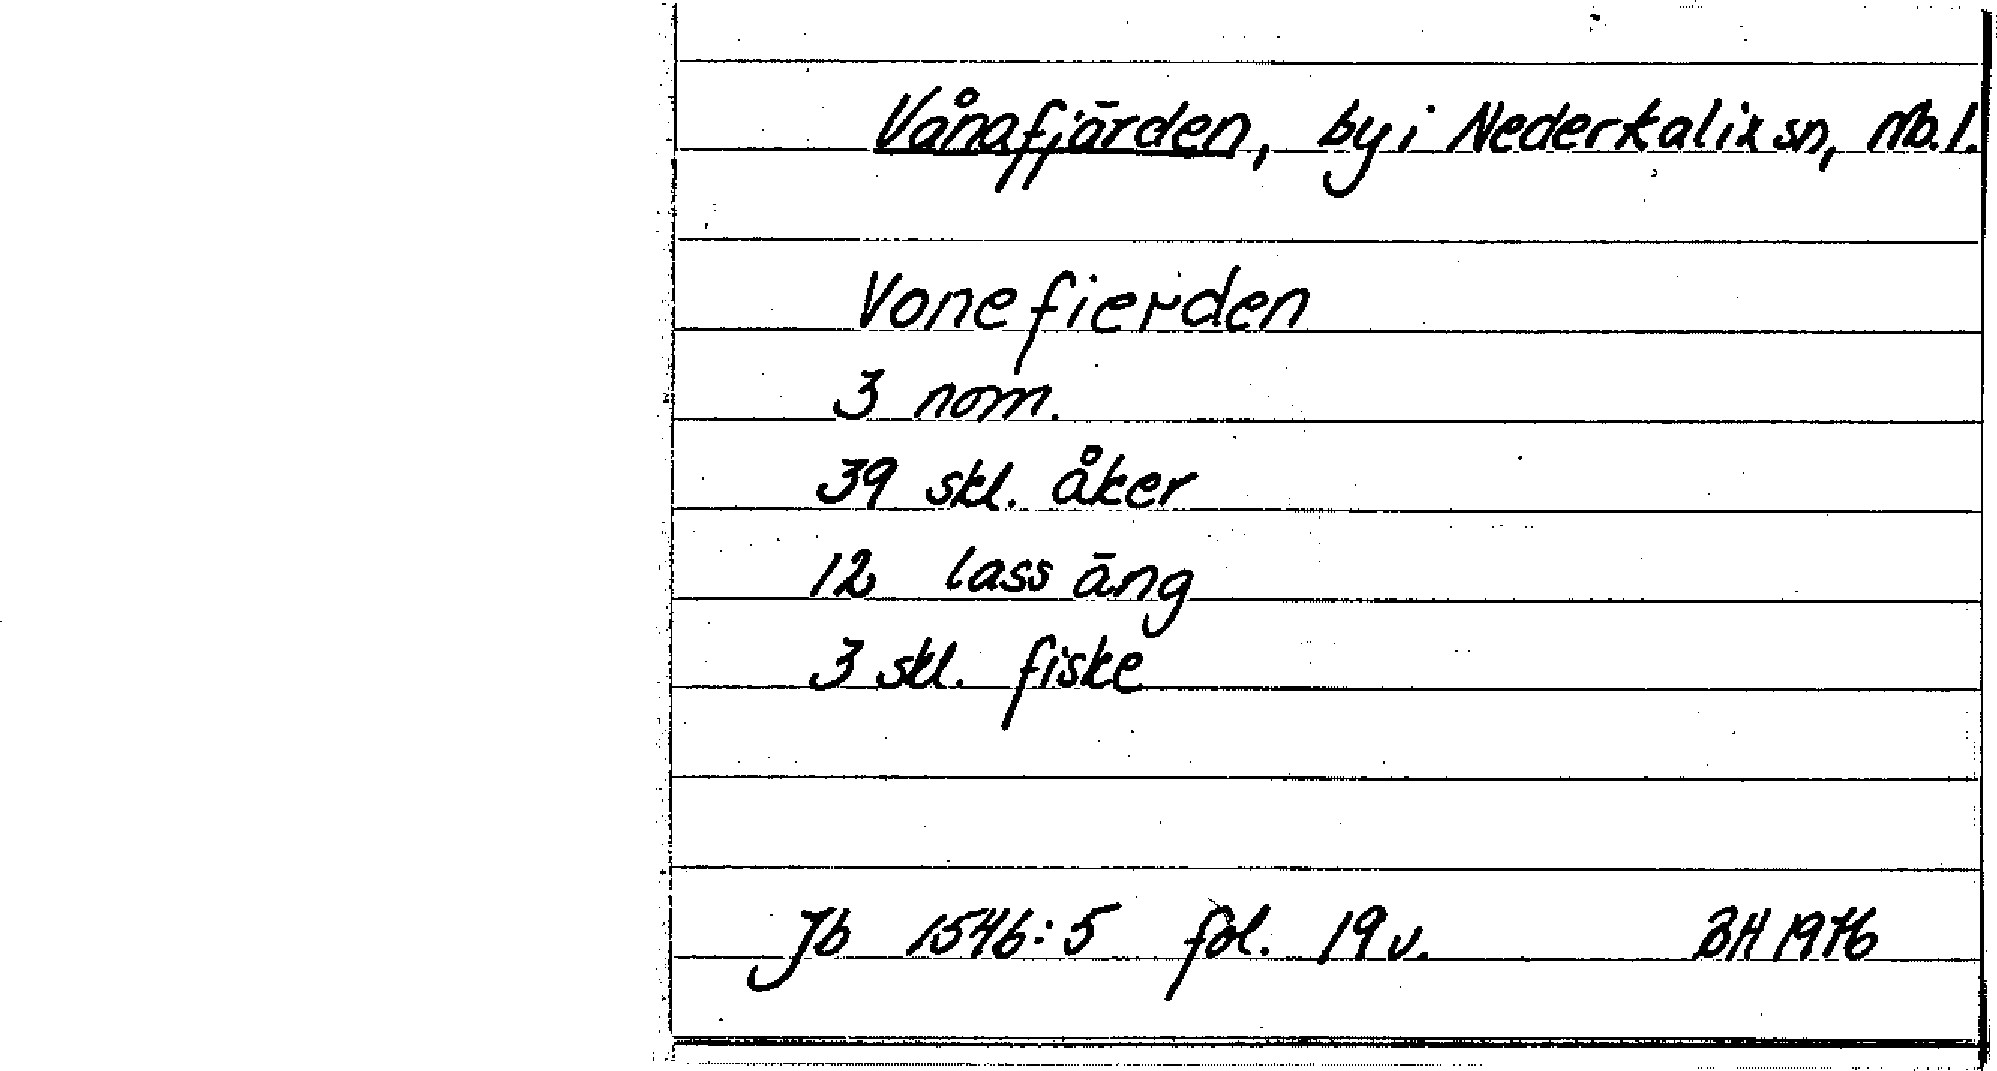 Vånafjärden, by i Nederkalix sn, Nb. l.
Vonefierden
3 nom.
39 skl. åker
12 lass äng
3 skl. fiske
Jb 1546:5 fol. 19 v. BH 1976